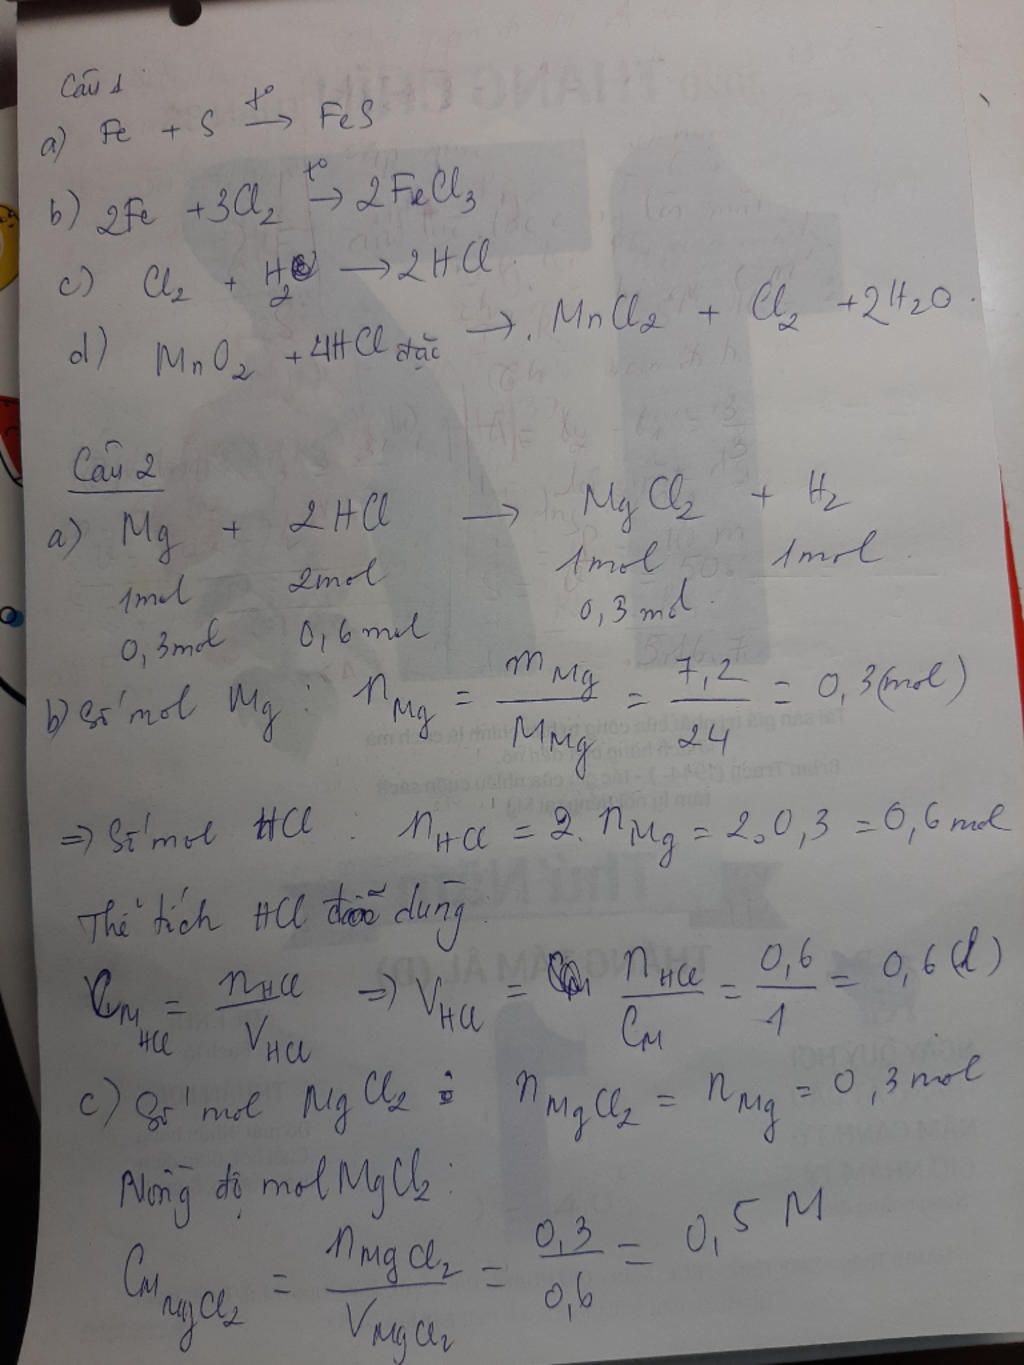 Câu 1
a) Fe + S t° → FeS
b) 2Fe + 3Cl₂ t° → 2FeCl₃
c) Cl₂ + H₂ → 2HCl
d) MnO₂ + 4HCl đặc → MnCl₂ + Cl₂ + 2H₂O.
Câu 2
a) Mg + 2HCl → MgCl₂ + H₂
1mol 2mol 1mol 1mol
0,3mol 0,6mol 0,3mol
b) Số mol Mg : n_Mg = m_Mg / M_Mg = 7,2 / 24 = 0,3(mol)
=> Số mol HCl : n_HCl = 2. n_Mg = 2.0,3 = 0,6 mol
Thể tích HCl đã dùng:
C_M HCl = n_HCl / V_HCl => V_HCl = n_HCl / C_M = 0,6 / 1 = 0,6 (l)
c) Số mol MgCl₂ : n_MgCl₂ = n_Mg = 0,3mol
Nồng độ mol MgCl₂ :
C_M MgCl₂ = n_MgCl₂ / V_MgCl₂ = 0,3 / 0,6 = 0,5 M